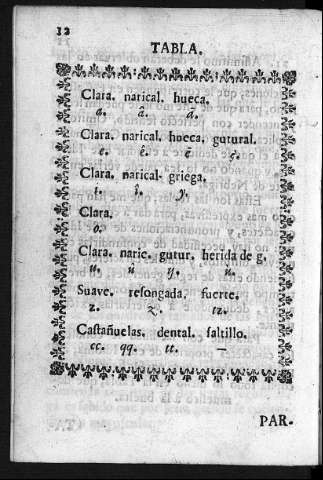 12
TABLA.
Clara. narical. hueca.
a. â. ā.
Clara. narical. hueca. gutural.
e. ê. ē ę.
Clara. narical- griega.
i. î. y.
Clara.
o.
Clara. naric. gutur. herida de g,
u. ų. u.
Suave. resongada, fuerte.
z. tz.
Castañuelas. dental. saltillo.
cc. qq. tt. -
PAR-